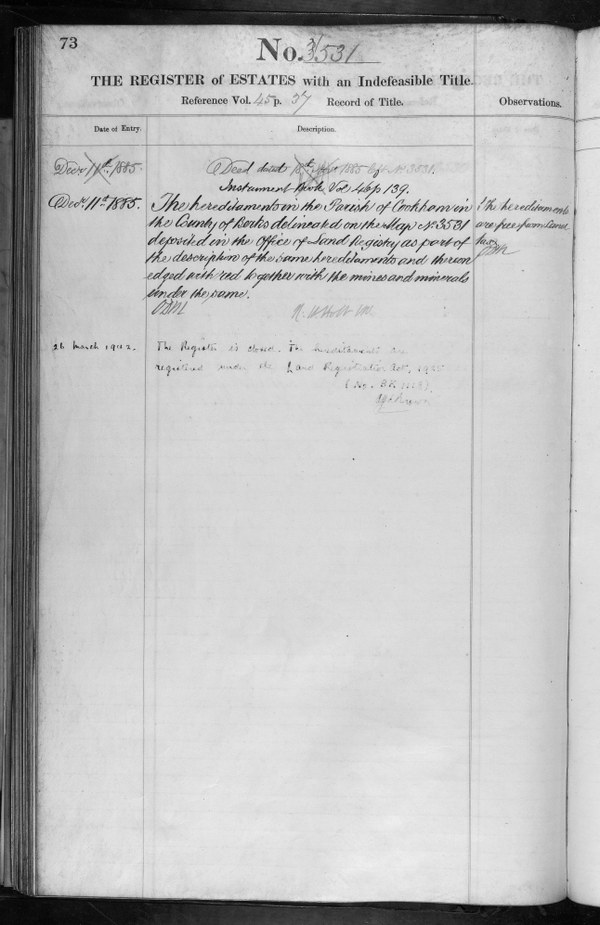 73
No. 3531
THE REGISTER of ESTATES with an Indefeasible Title.
Reference Vol. 45 p. 37 Record of Title.
Observations.
Date of Entry.
Description.
Decr 11th 1885.
Deed dated 1885 3531.
Instrument Book Vol 46 p 139.
Decr 11th 1885.
The hereditaments in the Parish of Cookham in
the County of Berks delineated on the Map No 3531
deposited in the Office of Land Registry as part of
the description of the same hereditaments and thereon
edged with red together with the mines and minerals
under the same.
The hereditaments
are free from Land
tax
R. H. Holt
26 March 1942.
The Register is closed. The hereditaments are
registered under the Land Registration Act, 1925
(No. BK
Brown